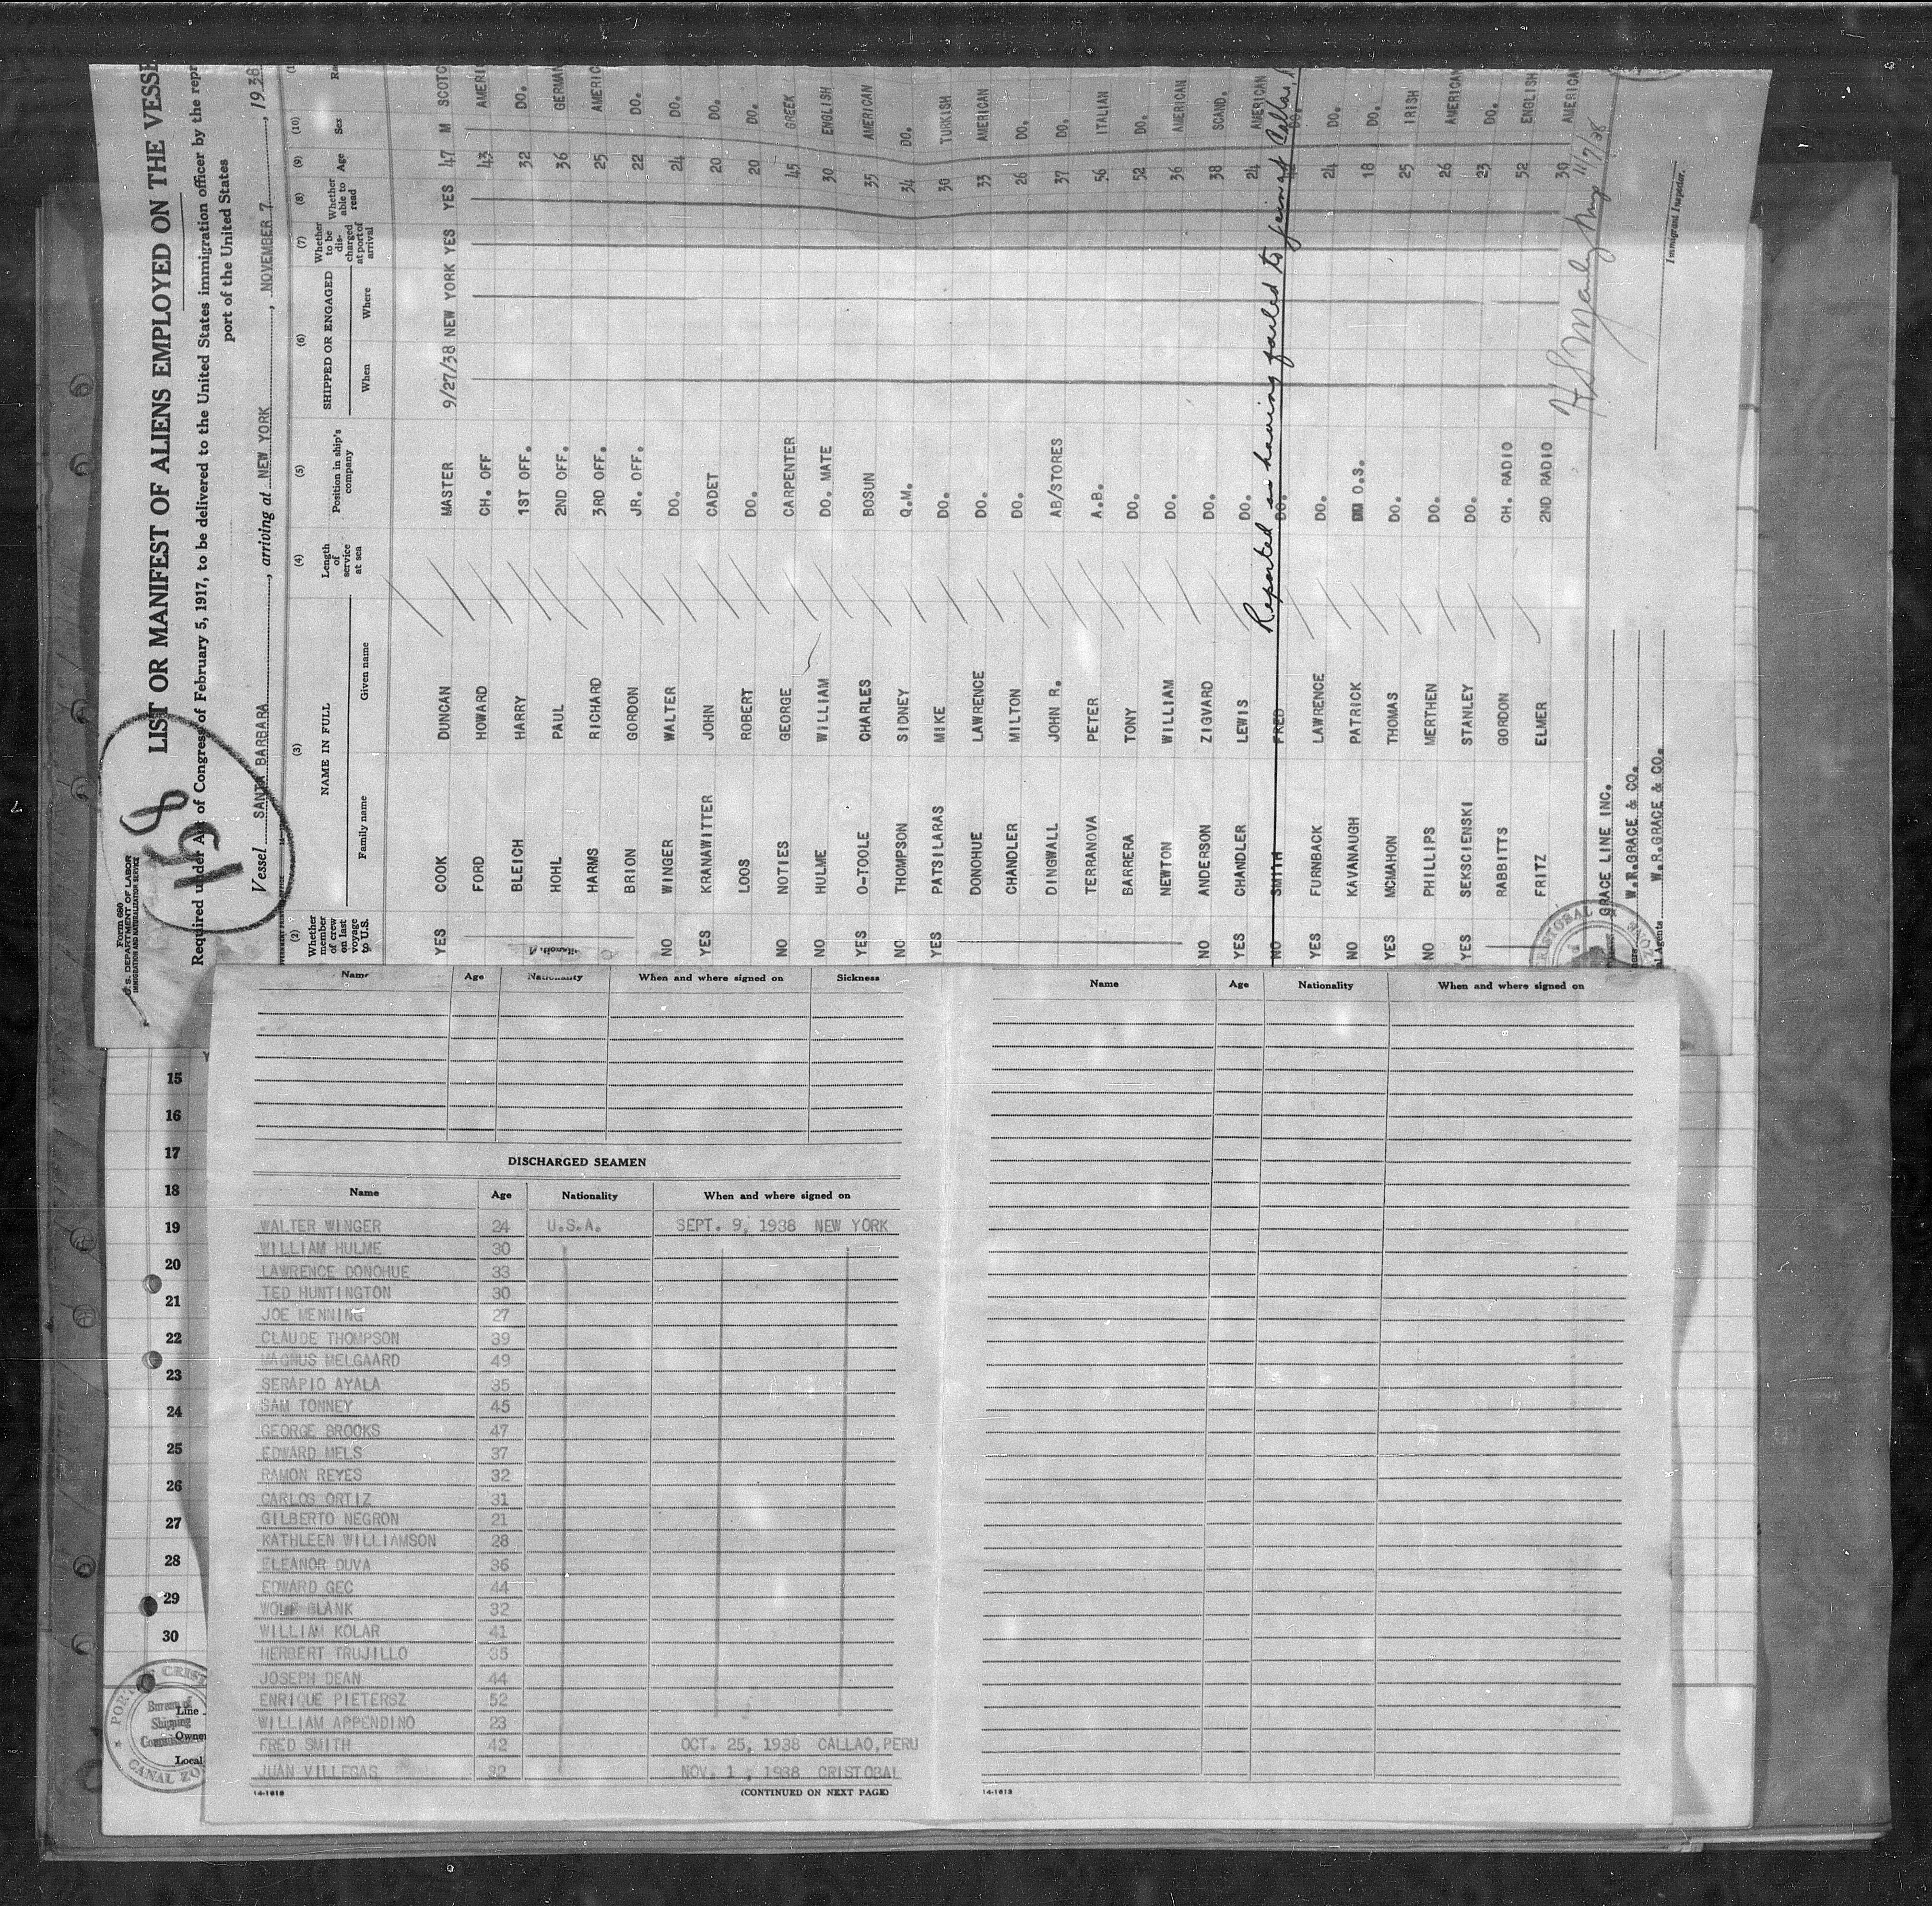 Form 680
U. S. DEPARTMENT OF LABOR
IMMIGRATION AND NATURALIZATION SERVICE
158
LIST OR MANIFEST OF ALIENS EMPLOYED ON THE VESSE
Required under Act of Congress of February 5, 1917, to be delivered to the United States immigration officer by the repr
port of the United States
Vessel SANTA BARBARA, arriving at NEW YORK, NOVEMBER 7, 1938
(2) (3) (4) (5) (6) (7) (8) (9) (10) (1
Whether member of crew on last voyage to U.S.
NAME IN FULL
Family name Given name
Length of service at sea
Position in ship's company
SHIPPED OR ENGAGED
When Where
Whether to be discharged at port of arrival
Whether able to read
Age
Sex
Ra
YES COOK DUNCAN MASTER 9/27/38 NEW YORK YES YES 47 M SCOTC
FORD HOWARD CH. OFF 43 AMERI
BLEICH HARRY 1ST OFF. 32 DO.
HOHL PAUL 2ND OFF. 36 GERMAN
HARMS RICHARD 3RD OFF. 25 AMERIC
BRION GORDON JR. OFF. 22 DO.
NO WINGER WALTER DO. 24 DO.
YES KRANAWITTER JOHN CADET 20 DO.
LOOS ROBERT DO. 20 DO.
NO NOTIES GEORGE CARPENTER 45 GREEK
NO HULME WILLIAM DO. MATE 30 ENGLISH
YES O-TOOLE CHARLES BOSUN 35 AMERICAN
NO THOMPSON SIDNEY Q.M. 34 DO.
YES PATSILARAS MIKE DO. 30 TURKISH
DONOHUE LAWRENCE DO. 33 AMERICAN
CHANDLER MILTON DO. 26 DO.
DINGWALL JOHN R. AB/STORES 37 DO.
TERRANOVA PETER A.B. 56 ITALIAN
BARRERA TONY DO. 52 DO.
NEWTON WILLIAM DO. 36 AMERICAN
NO ANDERSON ZIGVARD DO. 38 SCAND.
YES CHANDLER LEWIS DO. 24 AMERICAN
Reported as having failed to join at Callao,
NO SMITH FRED DO. 42 DO.
YES FURNBACK LAWRENCE DO. 24 DO.
NO KAVANAUGH PATRICK O.S. 18 DO.
YES MCMAHON THOMAS DO. 25 IRISH
NO PHILLIPS MERTHEN DO. 26 AMERICAN
YES SEKSCIENSKI STANLEY DO. 23 DO.
RABBITTS GORDON CH. RADIO 52 ENGLISH
FRITZ ELMER 2ND RADIO 30 AMERICA
11/7/38
GRACE LINE INC.
W.R.GRACE & CO.
W.R.GRACE & CO.
Immigrant Inspector.
Name Age Nationality When and where signed on Sickness
DISCHARGED SEAMEN
Name Age Nationality When and where signed on
WALTER WINGER 24 U.S.A. SEPT. 9, 1938 NEW YORK
WILLIAM HULME 30
LAWRENCE DONOHUE 33
TED HUNTINGTON 30
JOE MENNING 27
CLAUDE THOMPSON 39
MAGNUS MELGAARD 49
SERAPIO AYALA 35
SAM TONNEY 45
GEORGE BROOKS 47
EDWARD MELS 37
RAMON REYES 32
CARLOS ORTIZ 31
GILBERTO NEGRON 21
KATHLEEN WILLIAMSON 28
ELEANOR DUVA 36
EDWARD GEC 44
WOLF BLANK 32
WILLIAM KOLAR 41
HERBERT TRUJILLO 35
JOSEPH DEAN 44
ENRIQUE PIETERSZ 52
WILLIAM APPENDINO 23
FRED SMITH 42 OCT. 25, 1938 CALLAO,PERU
JUAN VILLEGAS 32 NOV. 1, 1938 CRISTOBAL
14-1613 (CONTINUED ON NEXT PAGE)
Name Age Nationality When and where signed on
14-1613
15
16
17
18
19
20
21
22
23
24
25
26
27
28
29
30
Line
Owner
Local
PORT CRIST
Bureau of
Shipping
CANAL ZO